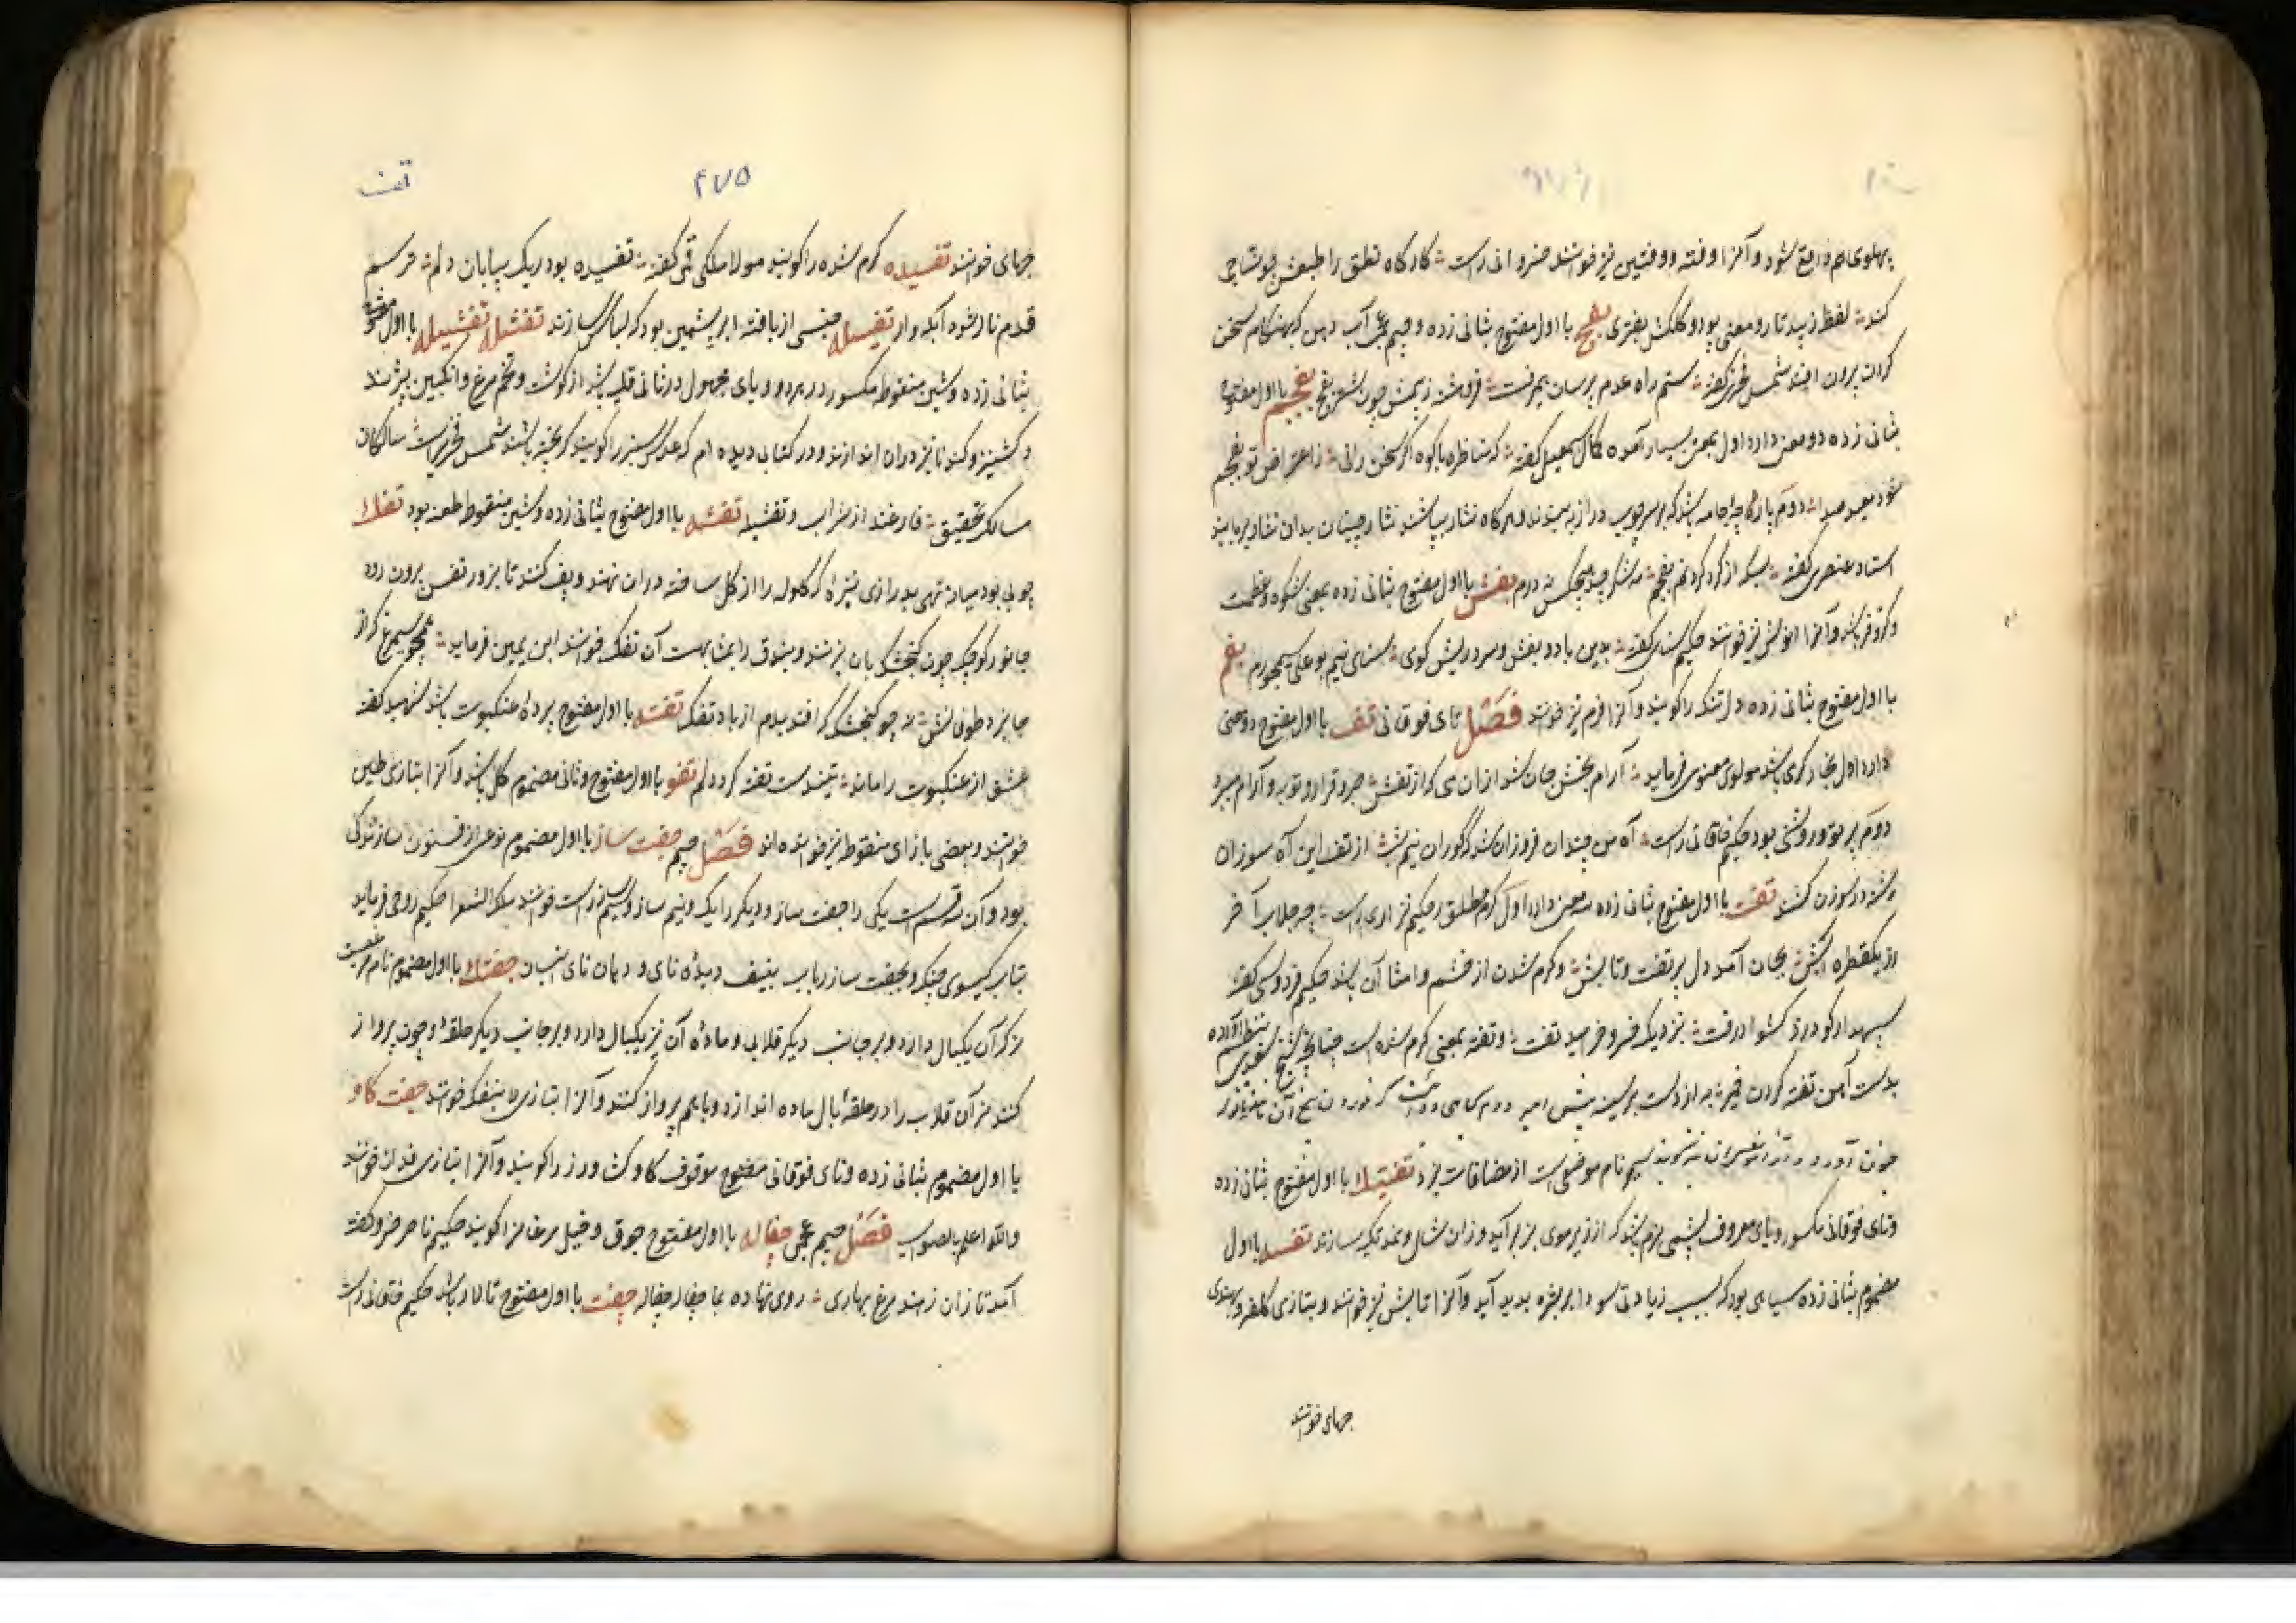 پهلوی هم واقع شود و آنرا وفته و وفتین نیز خوانند خسروانی راست کارگاه تعلق را طبعش جولاهی
کند لفظ زیبد تار و معنی پود و کلکش بفتری بفج با اول مفتوح بثانی زده و جیم عجمی آب دهن که بهنگام سخن
کردن برون افتد شمس فخری گفته ستم راه عدم ترسان بمیرفت فروهشته ز بیمش چون شتر بفج بفجم با اول مفتوح
بثانی زده دو معنی دارد اول بمعنی بسیار آمده کمال اسمعیل گفته که مناظره با کوه اگر سخن رانی ز اعتراض تو بفجم
شود صدا دوم پارچه جامه باشد که بر سر چوب دراز به بندند و هرگاه نثار بپاشند نثار چینان بدان نثار بربایند
استاد عنصری گفته بسکه از گرد کردنم بفجم نه شکر چید هیچکس نه درم بفش با اول مفتوح بثانی زده بمعنی شکوه و عظمت
و کروفر باشد و آنرا نیز خوانند حکیم سنائی گفته بدین باد و بفش و سر و ریش گوی سنائی نیم بوعلی سیمجورم بفم
با اول مفتوح بثانی زده دلتنگ را گویند و آنرا فرم نیز خوانند فصل تای فوقانی تف با اول مفتوح دو معنی
دارد اول بخار گرمی باشد مولوی معنوی فرماید آرام بخش جان شد ازان می که از تفش صبر و قرار و توبه و آرام میبرد
دوم پرتو و روشنی بود حکیم خاقانی راست آه من چندان فروزان شد که کوران نیم شب از تف این آه سوزان
رشته در سوزن کشند تفت با اول مفتوح بثانی زده سه معنی دارد اول گرم مطلق حکیم نزاری راست چه جلاب آخر
از یکقطره آتش بجان آمد دل پر تفت و تابش و گرم شدن از خشم و امثال آن باشد حکیم فردوسی گفته
سپهدار گودرز کشواد رفت بنزدیک خسرو خرامید تفت و تفته بمعنی گرم شده است چنانچه شیخ سعدی بنظم آورده
بدست آهن تفته کردن خمیر به از دست بر سینه پیش امیر دوم گیاهی که خوردن بیخ آن
جنون آورد سیم نام موضعی است از مضافات یزد تفتیک با اول مفتوح بثانی زده
و تای فوقانی مکسور و یای معروف پشمی نرم باشد که از زیر موی بز برآید و زان شال و نمد تکیه سازند تفسه با اول
مضموم بثانی زده سیاهی بود که بسبب زیادتی سودا بر بشره پدید آید و آنرا تابش نیز خوانند و بتازی کلفه و بهندی
جهای خوانند
تفت
۴۷۵
جهای خوانند تفسیده گرم شده را گویند مولانا ملکی قمی گفته تفسیده بود ریک بیابان دلم هر سیم
قدم نابرخوه آبکه وار تفسیله جنسی از بافته ابریشمین بود که لباس سازند تفشله تفشیله با اول مفتوح
بثانی زده و شین منقوطه مکسور در هر دو و یای مجهول در ثانی قلیه باشد از گوشت و تخم مرغ و انگبین پزند
و گشنیز و گندنا نیز دران اندازند و در کتابی دیده ام که عدس سبز را گویند که پخته باشند شمس فخری راست سالکان
مسالک تحقیق فارغند از شراب و تفشیله تفشه با اول مفتوح بثانی زده و شین منقوط طعنه بود تفک
چوبی بود میانه تهی بدرازی نیزه که گلوله را از گل ساخته دران نهند و پف کنند تا بزور نفس برون رود
جانور کوچک چون گنجشک بان بزنند و بندوق را بمشابهت آن تفک خوانند ابن یمین فرماید همچو سیمرغ کز
جا نبرد طوفانش نه چو گنجشک که افتد بدم از باد تفک تفنه با اول مفتوح پرده عنکبوت باشد شهید گفته
عشق از عنکبوت را ماند تنیدست تفنه کرد دلم تفو با اول مفتوح و ثانی مضموم گل باشد و آنرا بتازی طین
خوانند و بعضی با زای منقوط نیز خوانده اند فصل جیم جفت ساز با اول مضموم نوعی از فنون سازندگی
بود و آن سه قسم است یکی را جفت ساز و دیگر را یک و نیم ساز و سیم را راست خوانند ملک الشعرا حکیم روحی فرماید
بتاب گیسوی چنگ و بجفت ساز رباب بنیف دیده نای و دهان نای انبان جفتک با اول مضموم نام مرغیست
نر که آن یکبال دارد و بر جانب دیگر قلابی و ماده آن نیز یکبال دارد و بر جانب دیگر حلقه و چون پرواز
کنند نر آن قلاب را در حلقه بال ماده اندازد و باهم پرواز کنند و آنرا بتازی خوانند جفت گاو
با اول مضموم بثانی زده و تای فوقانی مفتوح موقوف گاو کشاورز را گویند و آنرا بتازی فدان خوانند
والله اعلم بالصواب فصل جیم عجمی چفاله با اول مفتوح جوق و خیل مرغانرا گویند حکیم ناصر خسرو گفته
آمد تازان ز هند مرغ بهاری روی نهاده بما چفاله چفاله چفت با اول مفتوح تالار باشد حکیم خاقانی راست